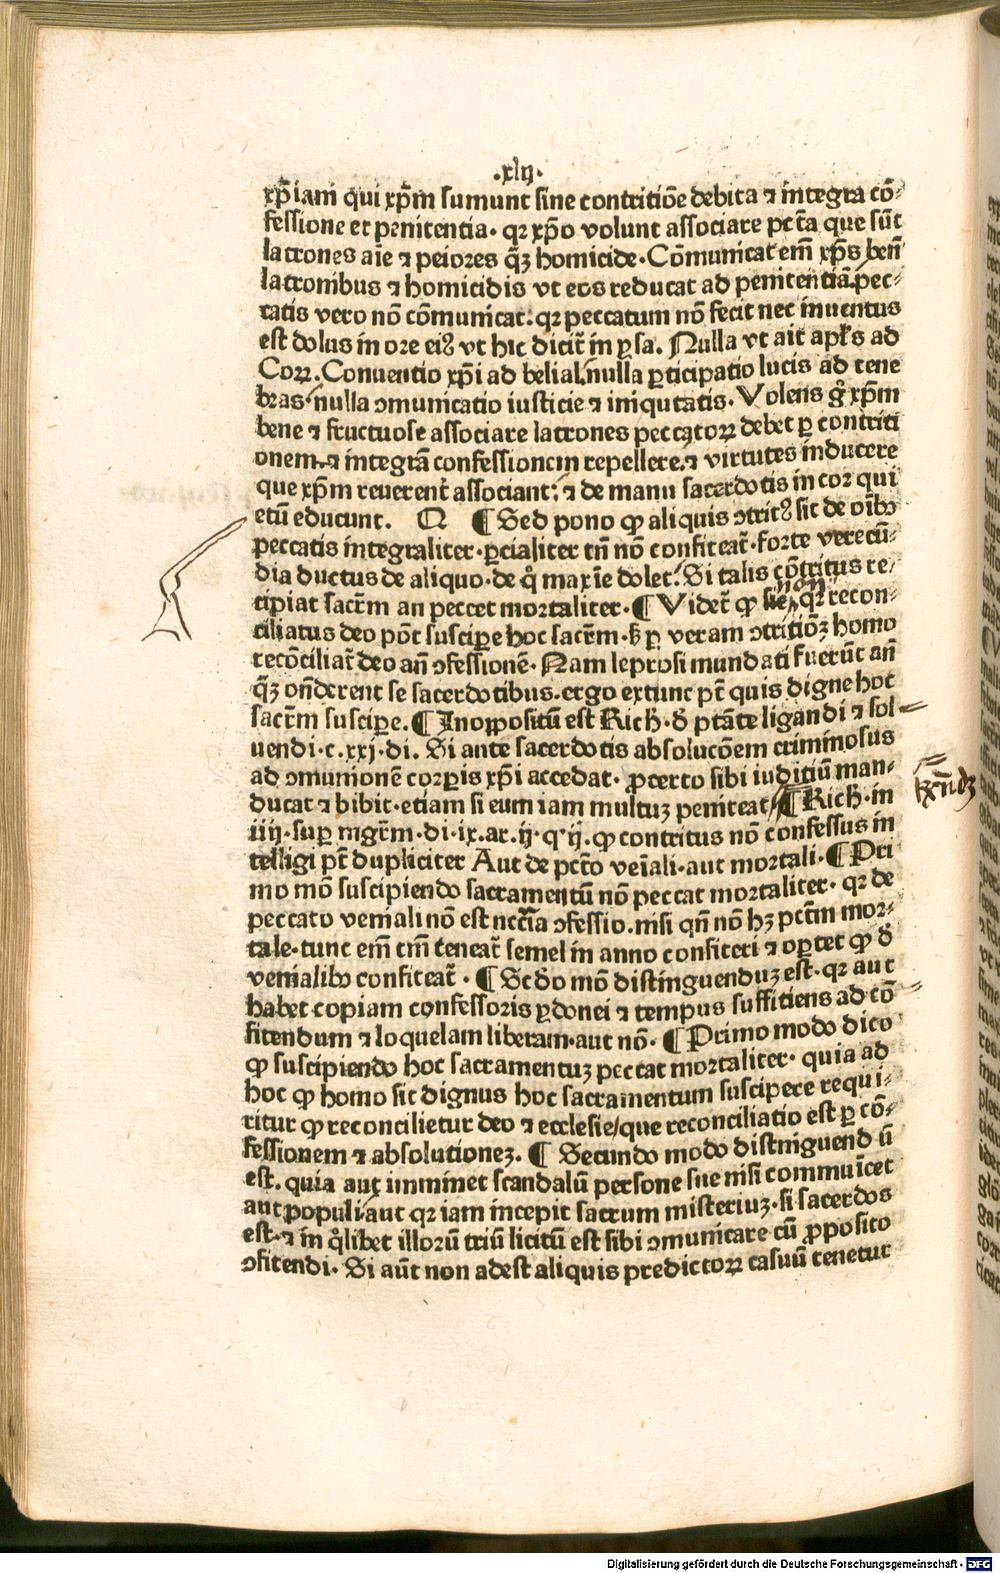 .xlij.
xp̄iani qui xp̄m sumunt sine contritiōe debita ⁊ integra cō-
fessione et penitentia. qꝛ xp̄o volunt associare pctā que sūt
latrones aīe ⁊ peiores q̄ꝫ homicide. Cōmunicat em̄ xp̄s ben̄
latronibus ⁊ homicidis vt eos reducat ad penitentiā. pec-
catis vero nō cōmunicat. qꝛ peccatum nō fecit nec inuentus
est dolus in ore eiꝰ vt hic dicit̄ in ꝓsa. Nulla vt ait apl̄s ad
Coꝝ. Conuentio xp̄i ad belial. nulla ꝑticipatio lucis ad tene
bras nulla ꝯmunicatio iusticie ⁊ iniqutatis. Volens gͦ xp̄m
bene ⁊ fructuose associare latrones peccatoꝝ debet ꝑ contriti
onem. ⁊ integrā confessionem repellere. ⁊ virtutes inducere
que xp̄m reuerent̄ associant; ⁊ de manu sacerdotis in cor qui
etū educunt. Q ¶ Sed pono ꝙ aliquis ꝯtritꝰ sit de oībꝰ
peccatis integraliter. ꝑcialiter tn̄ nō confiteat̄. forte verecū-
dia ductus de aliquo. de q̊ maxīe dolet. Si talis cōtritus re-
cipiat sacr̄m an peccet mortaliter. ¶ Videt̄ ꝙ sic non qꝛ recon-
ciliatus deo pōt suscipe hoc sacr̄m. sꝫ ꝑ veram ꝯtritiōꝫ homo
recōciliat̄ deo an̄ ꝯfessionē. Nam leprosi mundati fuerūt an̄
q̄ꝫ on̄derent se sacerdotibus. ergo extunc pt̄ quis digne hoc
sacr̄m suscipe. ¶ In oppositū est Rich. de ptāte ligandi ⁊ sol
uendi. c. xxj. di. Si ante sacerdotis absolucōem criminosus
ad ꝯmunionē corꝑis xp̄i accedat. ꝓcerto sibi iuditiū man-
ducat ⁊ bibit. etiam si eum iam multuꝫ peniteat ¶ Rich. in
iiij. suꝑ mgr̄m. di. ix. ar. ij. q̊ ij. ꝙ contritus nō confessus in
telligi pt̄ dupliciter Aut de pctō veīali. aut mortali. ¶ Pri
mo mō suscipiendo sacramentū nō peccat mortaliter. qꝛ de
peccato veniali nō est nccīa ꝯfessio. nisi qn̄ nō hꝫ pctm̄ mor-
tale. tunc em̄ tm̄ teneat̄ semel in anno confiteri ⁊ oꝑtet ꝙ de
venialibꝰ confiteat̄. ¶ Scdo mō distinguenduꝫ est. qꝛ aut
habet copiam confessoris ydonei ⁊ tempus suffitiens ad cō-
fitendum ⁊ loquelam liberam. aut nō. ¶ Primo modo dico
ꝙ suscipiendo hoc sacramentuꝫ peccat mortaliter. quia ad
hoc ꝙ homo sit dignus hoc sacramentum suscipere requi-
ritur ꝙ reconcilietur deo ⁊ ecclesie/que reconciliatio est ꝑ cō-
fessionem ⁊ absolutioneꝫ. ¶ Secundo modo distinguendū
est. quia aut imminet scandalū persone sue nisi commuīcet
aut populi/aut qꝛ iam incepit sacrum misteriuꝫ. si sacerdos
est. ⁊ in q̊libet illorū triū licitū est sibi ꝯmunicare cū ꝓposito
ꝯfitendi. Si aūt non adest aliquis predictoꝝ casuū tenetur
Digitalisierung gefördert durch die Deutsche Forschungsgemeinschaft - DFG